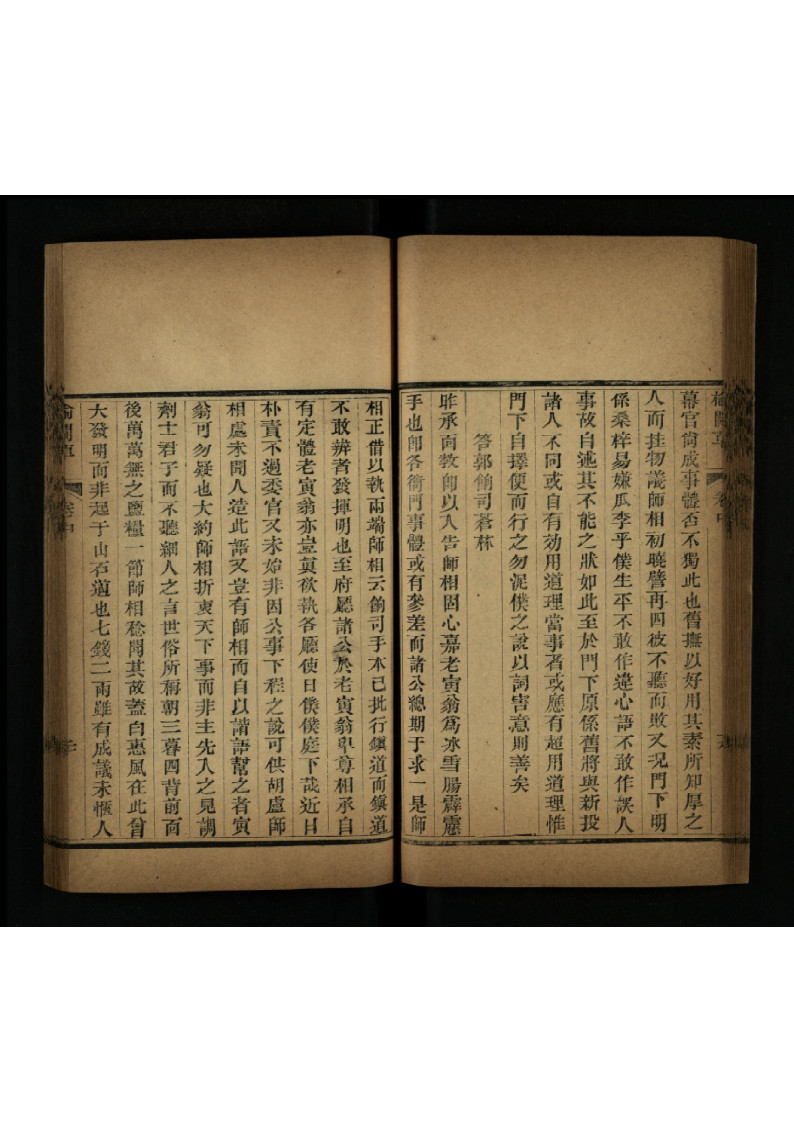 幕官尚成事體否不獨此也舊撫以好用其素所知厚之
人而挂物議師相初曉譬再四彼不聽而敗又况門下明
係桑梓易嫌瓜李乎僕生平不敢作違心語不敢作誤人
事故自述其不能之狀如此至於門下原係舊將與新投
諸人不同或自有効用道理當事者或應有超用道理惟
門下自擇便而行之勿泥僕之說以詞害意則善矣
答郭餉司蒼林
昨承面教卽以入告師相固心嘉老寅翁爲冰雪腸霹靂
手也卽各衙門事體或有參差而諸公總期于求一是師
相正借以執兩端師相云餉司手本已批行鎭道而鎭道
不敢辨者發揮明也至府廳諸公於老寅翁卑尊相承自
有定體老寅翁亦豈眞欲執各廳使日僕僕庭下哉近日
朴責不過委官又未始非因公事下程之說可供胡盧師
相處未聞人造此語又豈有師相而自以謔語幫之者寅
翁可勿疑也大約師相折衷天下事而非主先入之見調
劑士君子而不聽細人之言世俗所稱朝三暮四背前面
後萬萬無之鹽糧一節師相稔聞其故蓋白惠風在此曾
大發明而非起于山石道也七錢二兩雖有成議未愜人